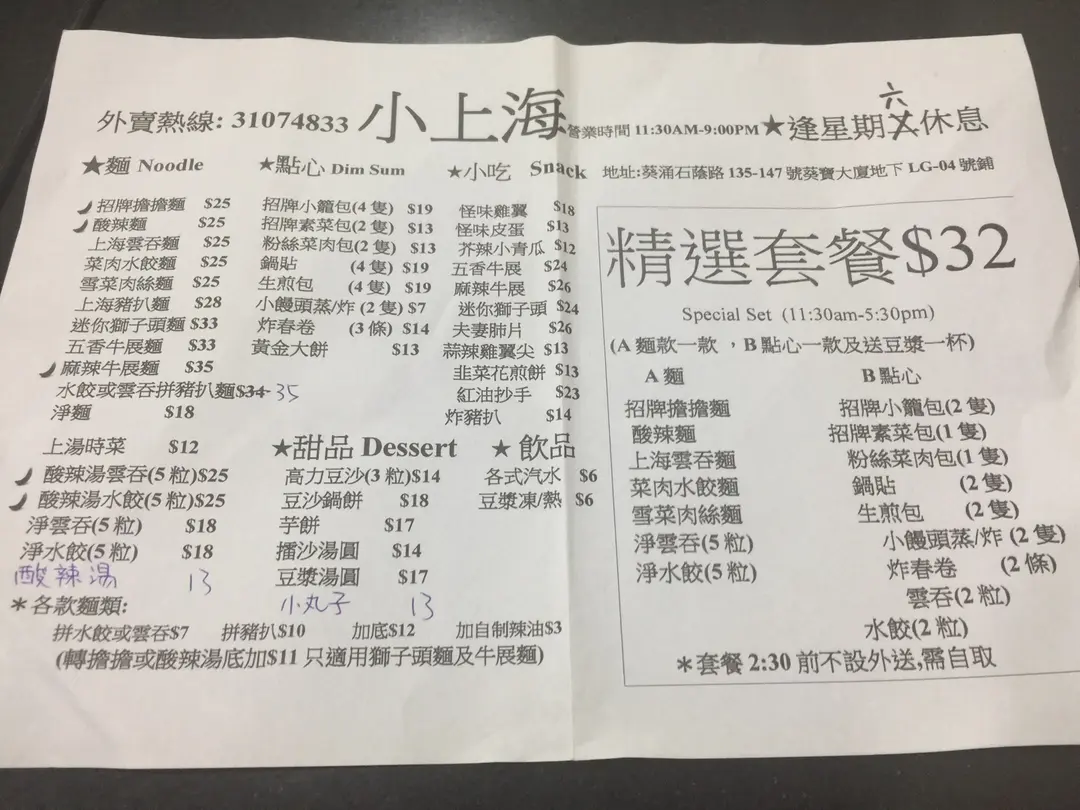 外賣熱線: 31074833 小上海 營業時間 11:30AM-9:00PM ★逢星期六休息
地址:葵涌石蔭路 135-147 號葵寶大廈地下 LG-04 號鋪
★麵 Noodle
招牌擔擔麵 $25
酸辣麵 $25
上海雲吞麵 $25
菜肉水餃麵 $25
雪菜肉絲麵 $25
上海豬扒麵 $28
迷你獅子頭麵 $33
五香牛展麵 $33
麻辣牛展麵 $35
水餃或雲吞拼豬扒麵$34 35
淨麵 $18
上湯時菜 $12
酸辣湯雲吞(5 粒)$25
酸辣湯水餃(5 粒)$25
淨雲吞(5 粒) $18
淨水餃(5 粒) $18
酸辣湯 13
★點心 Dim Sum
招牌小籠包(4 隻) $19
招牌素菜包(2 隻) $13
粉絲菜肉包(2 隻) $13
鍋貼 (4 隻) $19
生煎包 (4 隻) $19
小饅頭蒸/炸 (2 隻) $7
炸春卷 (3 條) $14
黃金大餅 $13
★小吃 Snack
怪味雞翼 $18
怪味皮蛋 $13
芥辣小青瓜 $12
五香牛展 $24
麻辣牛展 $26
迷你獅子頭 $24
夫妻肺片 $26
蒜辣雞翼尖 $13
韭菜花煎餅 $13
紅油抄手 $23
炸豬扒 $14
★甜品 Dessert
高力豆沙(3 粒)$14
豆沙鍋餅 $18
芋餅 $17
擂沙湯圓 $14
豆漿湯圓 $17
小丸子 13
★ 飲品
各式汽水 $6
豆漿凍/熱 $6
＊各款麵類:
拼水餃或雲吞$7 拼豬扒$10 加底$12 加自制辣油$3
(轉擔擔或酸辣湯底加$11 只適用獅子頭麵及牛展麵)
精選套餐$32
Special Set (11:30am-5:30pm)
(A 麵款一款 ，B 點心一款及送豆漿一杯)
A 麵
招牌擔擔麵
酸辣麵
上海雲吞麵
菜肉水餃麵
雪菜肉絲麵
淨雲吞(5 粒)
淨水餃(5 粒)
B 點心
招牌小籠包(2 隻)
招牌素菜包(1 隻)
粉絲菜肉包(1 隻)
鍋貼 (2 隻)
生煎包 (2 隻)
小饅頭蒸/炸 (2 隻)
炸春卷 (2 條)
雲吞(2 粒)
水餃(2 粒)
＊套餐 2:30 前不設外送,需自取